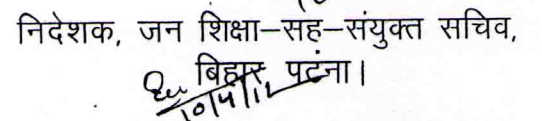 निदेशक, जन शिक्षा–सह–संयुक्त सचिव,
बिहार, पटना।
10/4/12